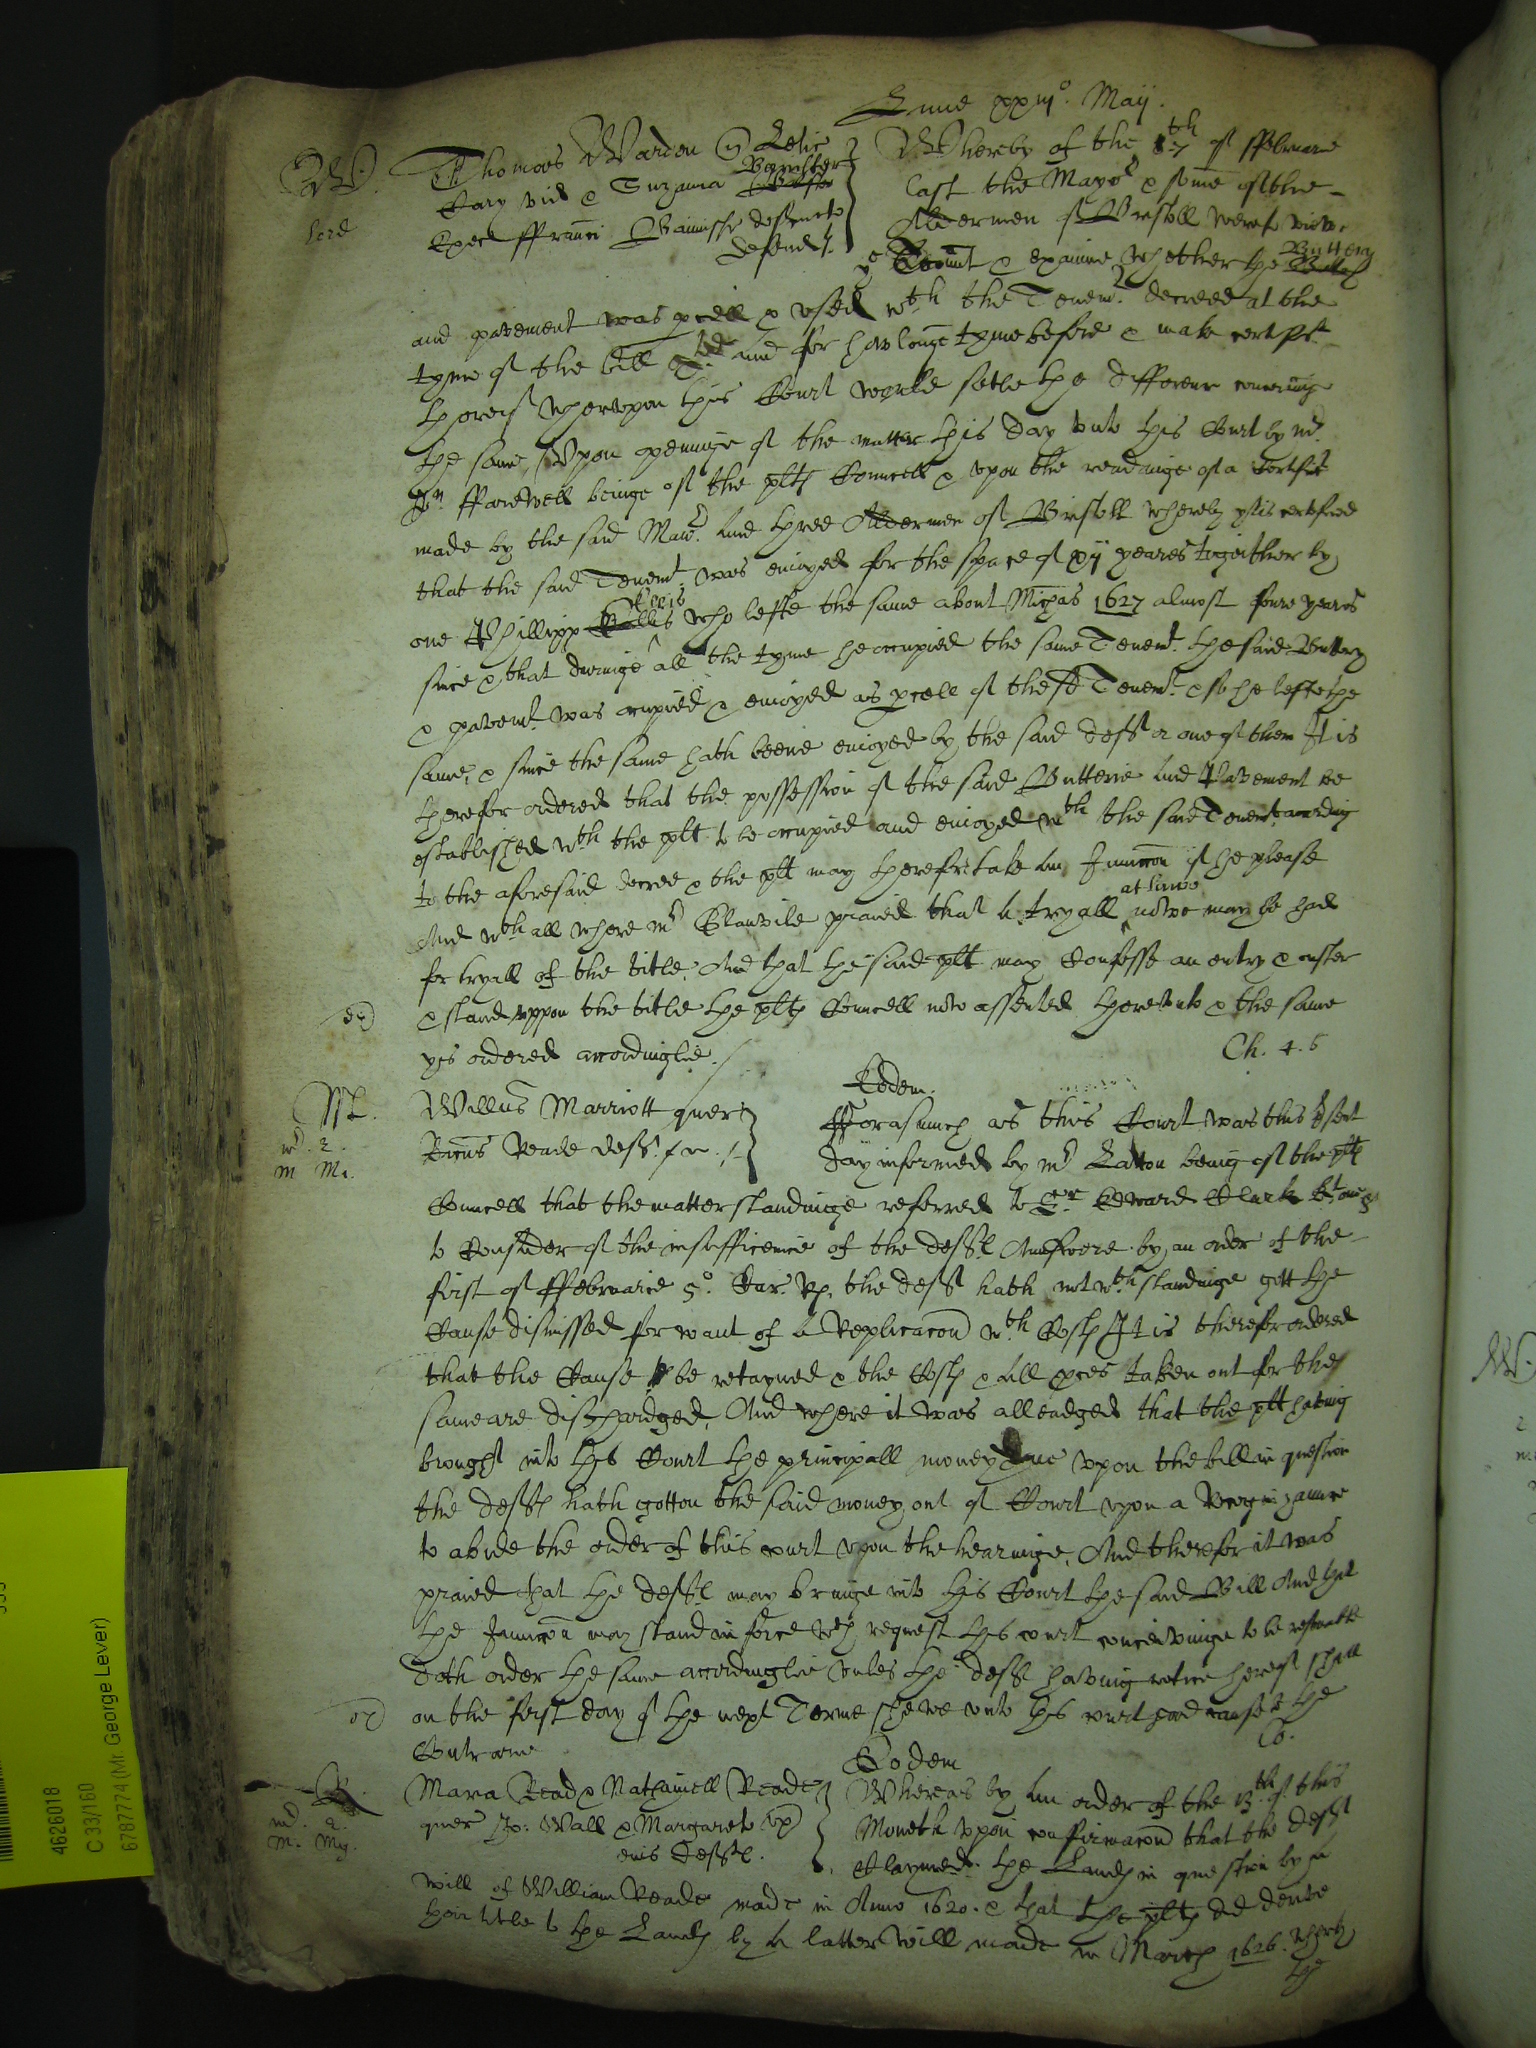 Lune xxiijo. Maij.
W.
Thomas Warden Quer Letic
Cary vid & Suzanna Banister
Exec ffranci Bannister defuncte
defend.
Whereby of the 17th of ffebruarie
last the Mayor & some of the
Aldermen of Bristoll were to viewe
ye Tenemt & examine whether the Buttery
and pavement was pcell & used wth the Tenemt. decreed at the
tyme of the bill and for how longe tyme before & make certifft
thereof whereupon this Court would setle the difference concerninge
the same, Upon openinge of the matter this day unto this Court by mr.
Jn ffarewell beinge of the plts Councell & upon the readinge of a Certificat
made by the said Maior. And three Aldermen of Bristoll whereby ytis certified
that the said Tenemt. was enioyed for the space of xij yeares togeither by
one Phillipp Ellis who lefte the same about Michas 1627 almost foure yeares
since & that duringe all the tyme he occupied the same Tenemt. the said Buttery
& pavemt was occupied & enioyed as pcell of the sd Tenemt. & so he lefte the
same, & since the same hath beene enioyed by the said defts or one of them It is
therefor ordered that the possession of the said Butterie And Pavement be
established wth the plt to be occupied and enioyed wth the said Tenemt according
to the aforesaid decree & the plt may therefore take An Iniunccon if he please
And wth all where mr Glanvile praied that A tryall at lawe nowe may be had
for tryall of the title, And that the said plt may Confesse an entry & ouster
& stand uppon the title the plts Councell now assented thereunto & the same
yis ordered accordinglie.
Ch. 4. 6
Eodem.
M.
Willus Marriott quer
Ricus Reade deft
fforasmuch as this Court was this psent
day informed by mr Latton being of the plts
Councell that the matter standinge referred to Sr. Edward Clark Kt one &c
to Consider of the insufficiencie of the defts Answeere by an order of the
first of ffebruarie 5o. Car. Rs. the deft hath notwthstandinge gott the
Cause dismissed for want of A Replicacon wth Costs It is therefor ordered
that the Cause be retayned & the Costs & All pces taken out for the
same are dischardged, And where it was alleadged that the plt having
brought into this Court the principall money due upon the bill in question
the deft hath gotton the said money out of Court upon a Recognizannce
to abide the order of this court upon the hearinge, And therefor it was
praied that the deft may bringe into this Court the said Bill And that
the Iniunccon may stand in force wch request this court conceivinge to be reasonable
doth order the same accordinglie unles the deft having notice hereof shall
on the first day of the next Terme shewe unto this court good cause to the
Contrarie
Co.
Eodem
R.
Maria Read & Nathaniell Reade
quer Jo: Wall & Margareta ux
eius defts.
Whereas by An order of the 13th of this
Moneth upon confirmacon that the deft
Claymed the Lands in question by a
will of William Reade made in Anno 1620. & that the plts did derive
their title to the Lands by A latter will made in March 1626. whereby
the
4626018
C 33/160
6787774 (Mr George Lever)